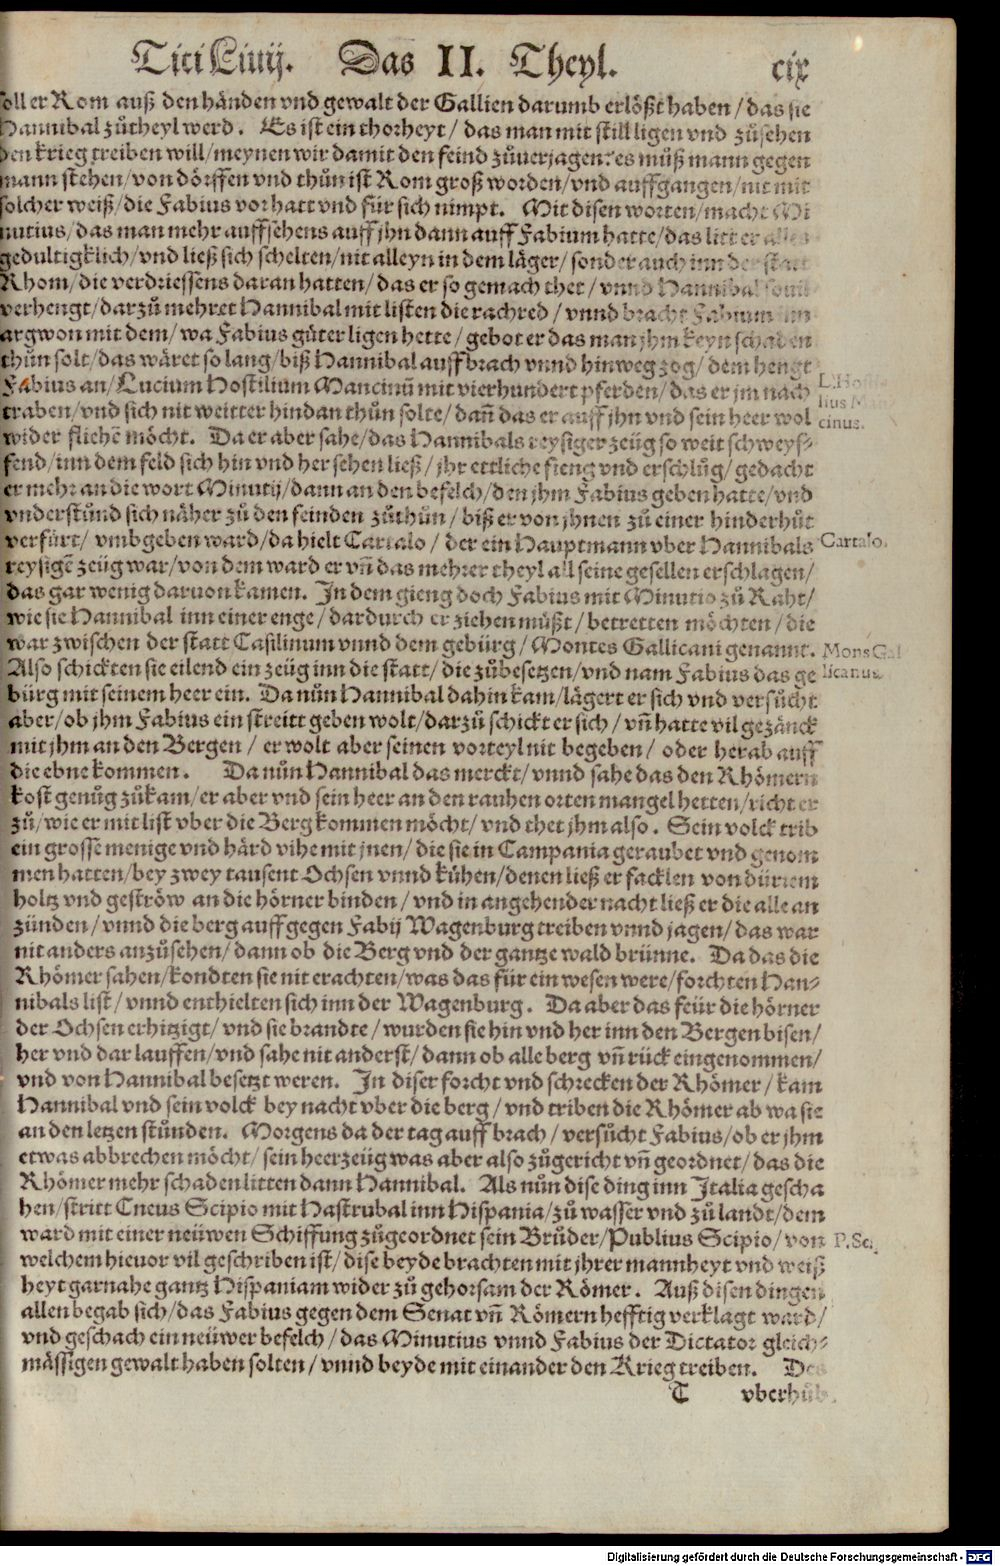 Titi Liuij. Das II. Theyl. cix
soll er Rom auß den händen vnd gewalt der Gallien darumb erlößt haben / das sie
Hannibal zůtheyl werd. Es ist ein thorheyt / das man mit still ligen vnd zůsehen
den krieg treiben will / meynen wir damit den feind zůuerjagen: es můß mann gegen
mann stehen / von dörffen vnd thůn ist Rom groß worden / vnd auffgangen / nit mit
solcher weiß / die Fabius vor hatt vnd für sich nimpt. Mit disen worten / macht Mi
nutius / das man mehr auffsehens auff jhn dann auff Fabium hatte / das litt er alles
gedultigklich / vnd ließ sich schelten / nit alleyn in dem läger / sonder auch inn der statt
Rhom / die verdriessens daran hatten / das er so gemach thet / vnnd Hannibal souil
verhengt / darzů mehret Hannibal mit listen die rachred / vnnd bracht Fabium inn
argwon mit dem / wa Fabius güter ligen hette / gebot er das man jhm keyn schaden
thůn solt / das wäret so lang / biß Hannibal auffbrach vnnd hinweg zog / dem hengt
Fabius an / Lucium Hostilium Mancinū mit vierhundert pferden / das er jm nach
L. Hosti
traben / vnd sich nit weitter hindan thůn solte / dañ das er auff jhn vnd sein heer wol
lius Man
cinus.
wider fliehē möcht. Da er aber sahe / das Hannibals reysiger zeüg so weit schweyf-
fend / inn dem feld sich hin vnd her sehen ließ / jhr ettliche fieng vnd erschlůg / gedacht
er mehr an die wort Minutij / dann an den befelch / den jhm Fabius geben hatte / vnd
vnderstůnd sich näher zů den feinden zůthůn / biß er von jhnen zů einer hinderhůt
verfürt / vmbgeben ward / da hielt Cartalo / der ein Hauptmann vber Hannibals
Cartalo.
reysigē zeüg war / von dem ward er vñ das mehrer theyl all seine gesellen erschlagen /
das gar wenig daruon kamen. In dem gieng doch Fabius mit Minutio zů Raht /
wie sie Hannibal inn einer enge / dardurch er ziehen müßt / betretten möchten / die
war zwischen der statt Casilinum vnnd dem gebürg / Montes Gallicani genannt.
Mons Gal
Also schickten sie eilend ein zeüg inn die statt / die zůbesetzen / vnd nam Fabius das ge
licanus.
bürg mit seinem heer ein. Da nůn Hannibal dahin kam / lägert er sich vnd versůcht
aber / ob jhm Fabius ein streitt geben wolt / darzů schickt er sich / vñ hatte vil gezänck
mit jhm an den Bergen / er wolt aber seinen vorteyl nit begeben / oder herab auff
die ebne kommen. Da nůn Hannibal das merckt / vnnd sahe das den Rhömern
kost genůg zůkam / er aber vnd sein heer an den rauhen orten mangel hetten / richt er
zů / wie er mit list vber die Berg kommen möcht / vnd thet jhm also. Sein volck trib
ein grosse menige vnd härd vihe mit jnen / die sie in Campania geraubet vnd genom
men hatten / bey zwey tausent Ochsen vnnd kühen / denen ließ er facklen von dürrem
holtz vnd geströw an die hörner binden / vnd in angehender nacht ließ er die alle an
zünden / vnnd die berg auff gegen Fabij Wagenburg treiben vnnd jagen / das war
nit anders anzůsehen / dann ob die Berg vnd der gantze wald brünne. Da das die
Rhömer sahen / kondten sie nit erachten / was das für ein wesen were / forchten Han-
nibals list / vnnd enthielten sich inn der Wagenburg. Da aber das feür die hörner
der Ochsen erhitzigt / vnd sie brandte / wurden sie hin vnd her inn den Bergen bisen /
her vnd dar lauffen / vnd sahe nit anderst / dann ob alle berg vñ rück eingenommen /
vnd von Hannibal besetzt weren. In diser forcht vnd schrecken der Rhömer / kam
Hannibal vnd sein volck bey nacht vber die berg / vnd triben die Rhömer ab wa sie
an den letzen stůnden. Morgens da der tag auff brach / versůcht Fabius / ob er jhm
etwas abbrechen möcht / sein heerzeüg was aber also zůgericht vñ geordnet / das die
Rhömer mehr schaden litten dann Hannibal. Als nůn dise ding inn Italia gescha
hen / stritt Cneus Scipio mit Hastrubal inn Hispania / zů wasser vnd zů landt / dem
ward mit einer neüwen Schiffung zůgeordnet sein Brůder / Publius Scipio / von
P. Sci
welchem hieuor vil geschriben ist / dise beyde brachten mit jhrer mannheyt vnd weiß
heyt gar nahe gantz Hispaniam wider zů gehorsam der Römer. Auß disen dingen
allen begab sich / das Fabius gegen dem Senat vñ Römern hefftig verklagt ward /
vnd geschach ein neüwer befelch / das Minutius vnnd Fabius der Dictator gleich-
mässigen gewalt haben solten / vnnd beyde mit einander den Krieg treiben. Des
T vberhůb
Digitalisierung gefördert durch die Deutsche Forschungsgemeinschaft - DFG